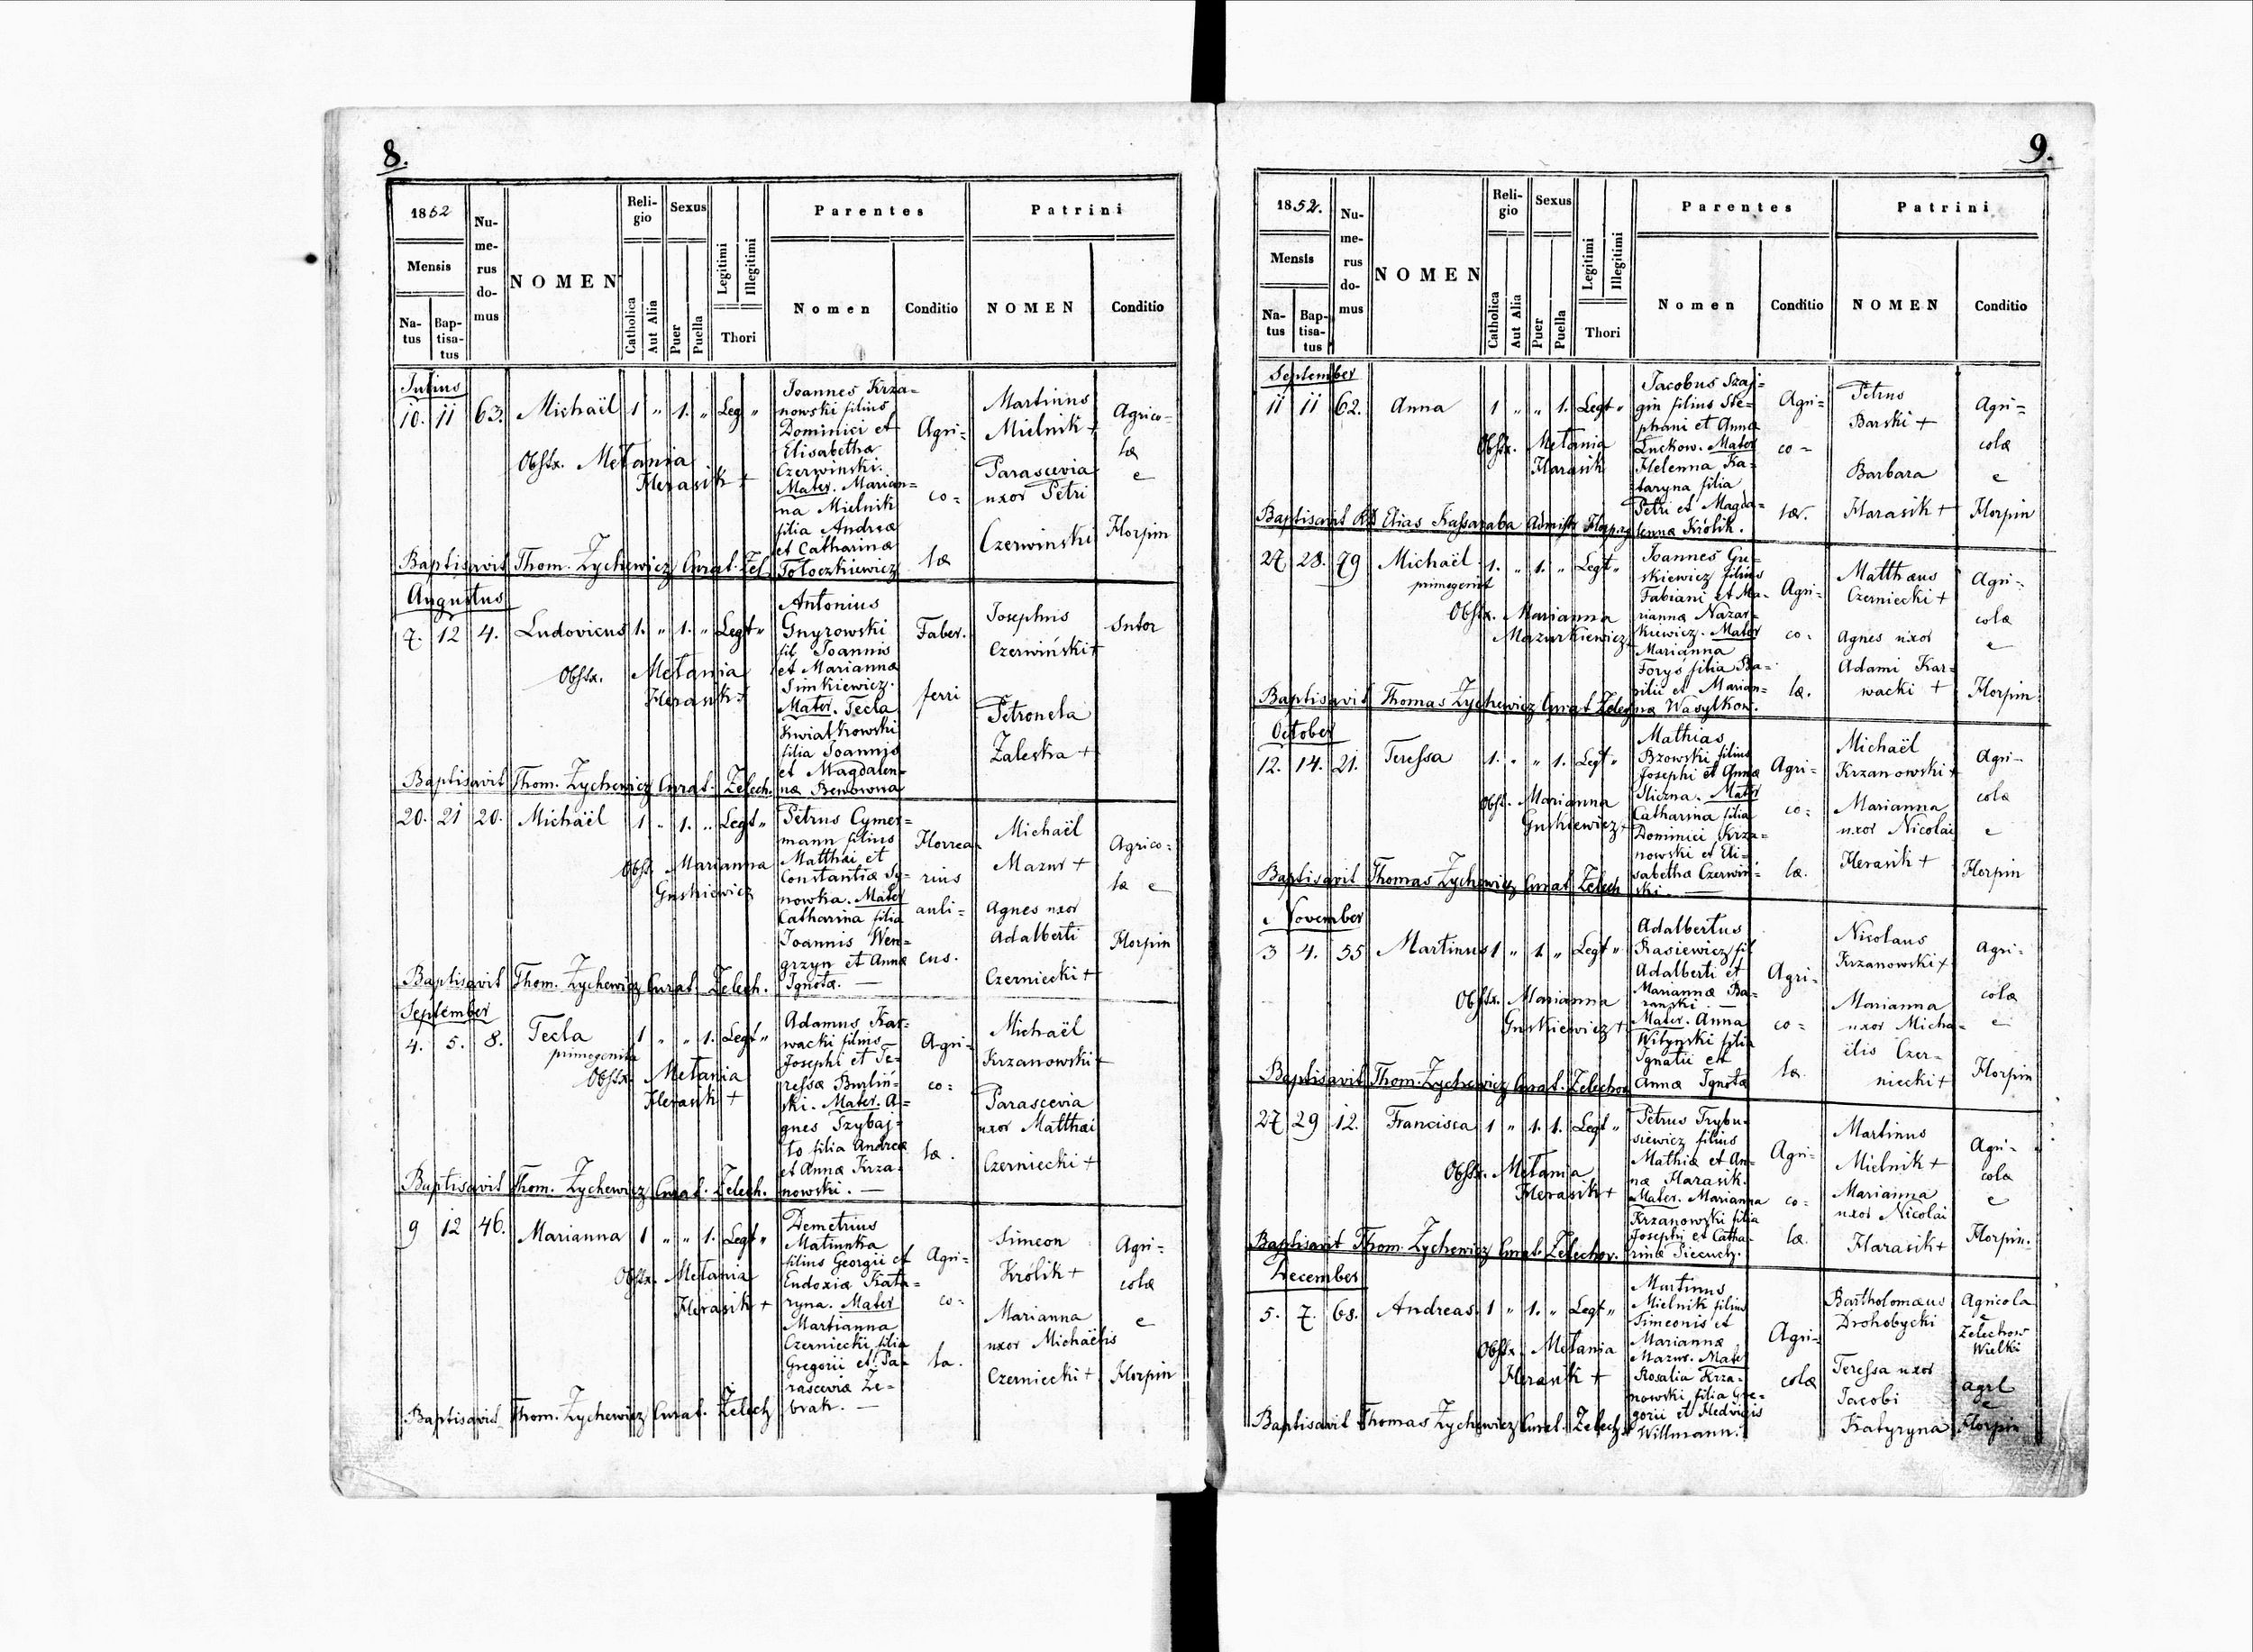 8.
1852
Mensis
Na-
tus
Bap-
tisa-
tus
Nu-
me-
rus
do-
mus
NOMEN
Reli-
gio
Catholica
Aut Alia
Sexus
Puer
Puella
Legitimi
Illegitimi
Thori
Parentes
Nomen
Conditio
Patrini
NOMEN
Conditio
Julius
10. 11 63. Michaël 1 " 1. " Leg "
Obstx. Melania
Herasik +
Joannes Krza=
nowski filius
Dominici et
Elisabetha
Czerwinski.
Mater. Marian=
na Mielnik
filia Andreæ
et Catharinæ
Tołoczkiewicz
Agri=
co=
læ
Martinus
Mielnik +
Parascevia
uxor Petri
Czerwinski
Agrico=
læ
e
Horpin
Baptisavit Thom. Zychewicz Curat. Żel.
Augustus
7. 12 4. Ludovicus 1. " 1. " Legt "
Obstx. Melania
Herasik +
Antonius
Gnyrowski
fil Joannis
et Mariannæ
Simkiewicz.
Mater. Tecla
Kwiatkowski
filia Joannis
et Magdalen=
næ Benowna
Faber.
ferri
Josephus
Czerwiński +
Petronela
Zaleska +
Sutor
Baptisavit Thom. Zychewicz Curat. Żelech.
20. 21 20. Michaël 1 " 1. " Legt "
Obst. Marianna
Guskiewicz
Petrus Cymer=
mann filius
Matthæi et
Constantiæ Sy=
nowka. Mater
Catharina filia
Joannis Wen=
grzyn et Annæ
Ignotæ. —
Horrea=
rius
auli=
cus.
Michaël
Mazur +
Agnes uxor
Adalberti
Czerniecki +
Agrico=
læ e
Horpin
Baptisavit Thom. Zychewicz Curat. Żelech.
September
4. 5. 8. Tecla 1 " " 1. Legt "
primogenita
Obstx. Melania
Herasik +
Adamus Kar=
wacki filius
Josephi et Te=
ressæ Burliń=
ski. Mater. A=
gnes Szybaj=
ło filia Andreæ
et Annæ Krza=
nowski. —
Agri=
co=
læ.
Michaël
Krzanowski +
Parascevia
uxor Matthæi
Czerniecki +
Baptisavit Thom. Zychewicz Curat. Żelech.
9 12 46. Marianna 1 " " 1. Legt "
Obstx. Melania
Herasik +
Demetrius
Matiunka
filius Georgii et
Eudoxiæ Kata=
ryna. Mater
Martianna
Czerniecki filia
Gregorii et Pa=
rasceviæ Że=
brak. —
Agri=
co=
la.
Simeon
Królik +
Marianna
uxor Michaëlis
Czerniecki +
Agri=
colæ
e
Horpin
Baptisavit Thom. Zychewicz Curat. Żelech
9.
1852.
Mensis
Na-
tus
Bap-
tisa-
tus
Nu-
me-
rus
do-
mus
NOMEN
Reli-
gio
Catholica
Aut Alia
Sexus
Puer
Puella
Legitimi
Illegitimi
Thori
Parentes
Nomen
Conditio
Patrini
NOMEN
Conditio
September
11 11 62. Anna 1 " " 1. Legt "
Obstx. Melania
Harasik
Jacobus Szaj=
gin filius Ste=
phani et Annæ
Luckow. Mater
Helenna Ka=
taryna filia
Petri et Magda=
lennæ Królik.
Agri=
co=
læ.
Petrus
Barski +
Barbara
Harasik +
Agri=
colæ
e
Horpin
Baptisavit Elias
27. 28. 79 Michaël 1. " 1. " Legt "
primogenit
Obstx. Marianna
Mazurkiewicz
Joannes Gu=
skiewicz filius
Fabiani et Ma=
riannæ Nazar=
kiewicz. Mater
Marianna
Foryś filia Ba=
silii et Marian=
næ Wasylkow.
Agri=
co=
læ.
Matthæus
Czerniecki +
Agnes uxor
Adami Kar=
wacki +
Agri=
colæ
e
Horpin
Baptisavit Thomas Zychewicz Curat Żelech
October
12. 14. 21. Teressa 1. " " 1. Legt "
Obst. Marianna
Guskiewicz +
Mathias
Bzowski filius
Josephi et Annæ
Sliczna. Mater
Catharina filia
Dominici Krza=
nowski et Eli=
sabethæ Czerwin=
ski. —
Agri=
co=
læ.
Michaël
Krzanowski +
Marianna
uxor Nicolai
Herasik +
Agri=
colæ
e
Horpin
Baptisavit Thomas Zychewicz Curat Żelech
November
3 4. 55 Martinus 1 " 1. " Legt "
Obstx. Marianna
Guskiewicz +
Adalbertus
Rasiewicz fil
Adalberti et
Mariannæ Ba=
ranski. —
Mater. Anna
Witynski filia
Ignatii et
Annæ Ignotæ
Agri=
co=
læ
Nicolaus
Krzanowski +
Marianna
uxor Micha=
ëlis Czer=
niecki +
Agri=
colæ
e
Horpin
Baptisavit Thom. Zychewicz Curat. Żelechov
27 29 12. Francisca 1 " 1. 1. Legt "
Obstx. Melania
Herasik +
Petrus Trybu=
siewicz filius
Mathiæ et An=
næ Harasik.
Mater. Marianna
Krzanowski filia
Josephi et Catha=
rinæ Piecuch.
Agri=
co=
læ.
Martinus
Mielnik +
Marianna
uxor Nicolai
Harasik +
Agri=
colæ
e
Horpin.
Baptisavit Thom. Zychewicz Curat. Żelechov.
December
5. 7. 68. Andreas 1 " 1. " Legt "
Obstx. Melania
Herasik +
Martinus
Mielnik filius
Simeonis et
Mariannæ
Mazur. Mater
Rosalia Krza=
nowski filia Gre=
gorii et Hedvigis
Willmann.
Agri=
colæ
Bartholomæus
Drohobycki
Teressa uxor
Jacobi
Katyryna
Agricola
e
Żelechow
Wielki
agrl
e
Horpin
Baptisavit Thomas Zychewicz Curat. Żelech.